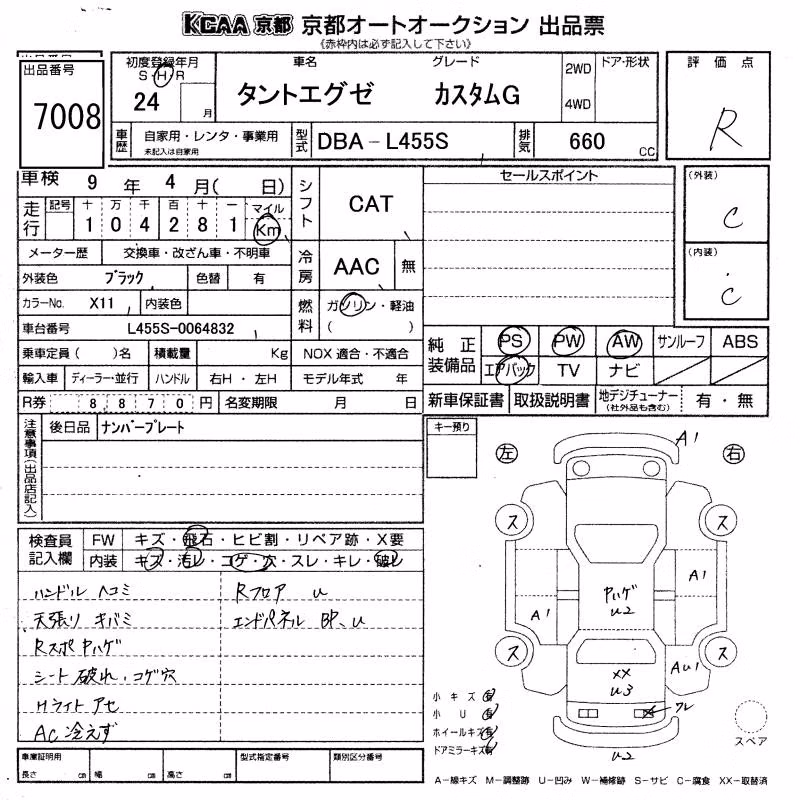 KCAA 京都 京都オートオークション 出品票
《赤枠内は必ず記入して下さい》
出品番号
7008
初度登録年月
S・H・R
24 月
車名
タントエグゼ
グレード
カスタムG
2WD
4WD
ドア・形状
評価点
R
車歴
自家用・レンタ・事業用
未記入は自家用
型式
DBA－L455S
排気
660 CC
車検 9 年 4 月( 日)
走行
記号 十 万 千 百 十 一
1 0 4 2 8 1
マイル
Km
シフト
CAT
セールスポイント
(外装)
C
(内装)
C
メーター歴 交換車・改ざん車・不明車
冷房
AAC
無
外装色 ブラック 色替 有
カラーNo. X11 内装色
燃料
ガソリン・軽油
( )
車台番号 L455S-0064832
乗車定員 ( )名 積載量 Kg NOX 適合・不適合
輸入車 ディーラー・並行 ハンドル 右H・左H モデル年式 年
R券 8 8 7 0 円 名変期限 月 日
純正装備品
PS PW AW サンルーフ ABS
エアバック TV ナビ
新車保証書 取扱説明書 地デジチューナー (社外品も含む) 有・無
注意事項(出品店記入)
後日品 ナンバープレート
キー預り
左 右
検査員記入欄
FW キズ・飛石・ヒビ割・リペア跡・X要
内装 キズ・汚レ・コゲ・穴・スレ・キレ・破レ
ハンドル ヘコミ
天張り キバミ
Rスポ ヤハゲ
シート 破れ・コゲ穴
Hライト アセ
AC 冷えず
Rフロア U
エンドパネル BP、U
A1
ス ス
A1
ヤハゲ
U2
A1
ス ス
AU1
XX
U3
ワレ
U2
小キズ 有
小U 有
ホイールキズ 有
ドアミラーキズ 有
スペア
車庫証明用
長さ cm 幅 cm 高さ cm
型式指定番号
類別区分番号
A－線キズ M－調整跡 U－凹み W－補修跡 S－サビ C－腐食 XX－取替済